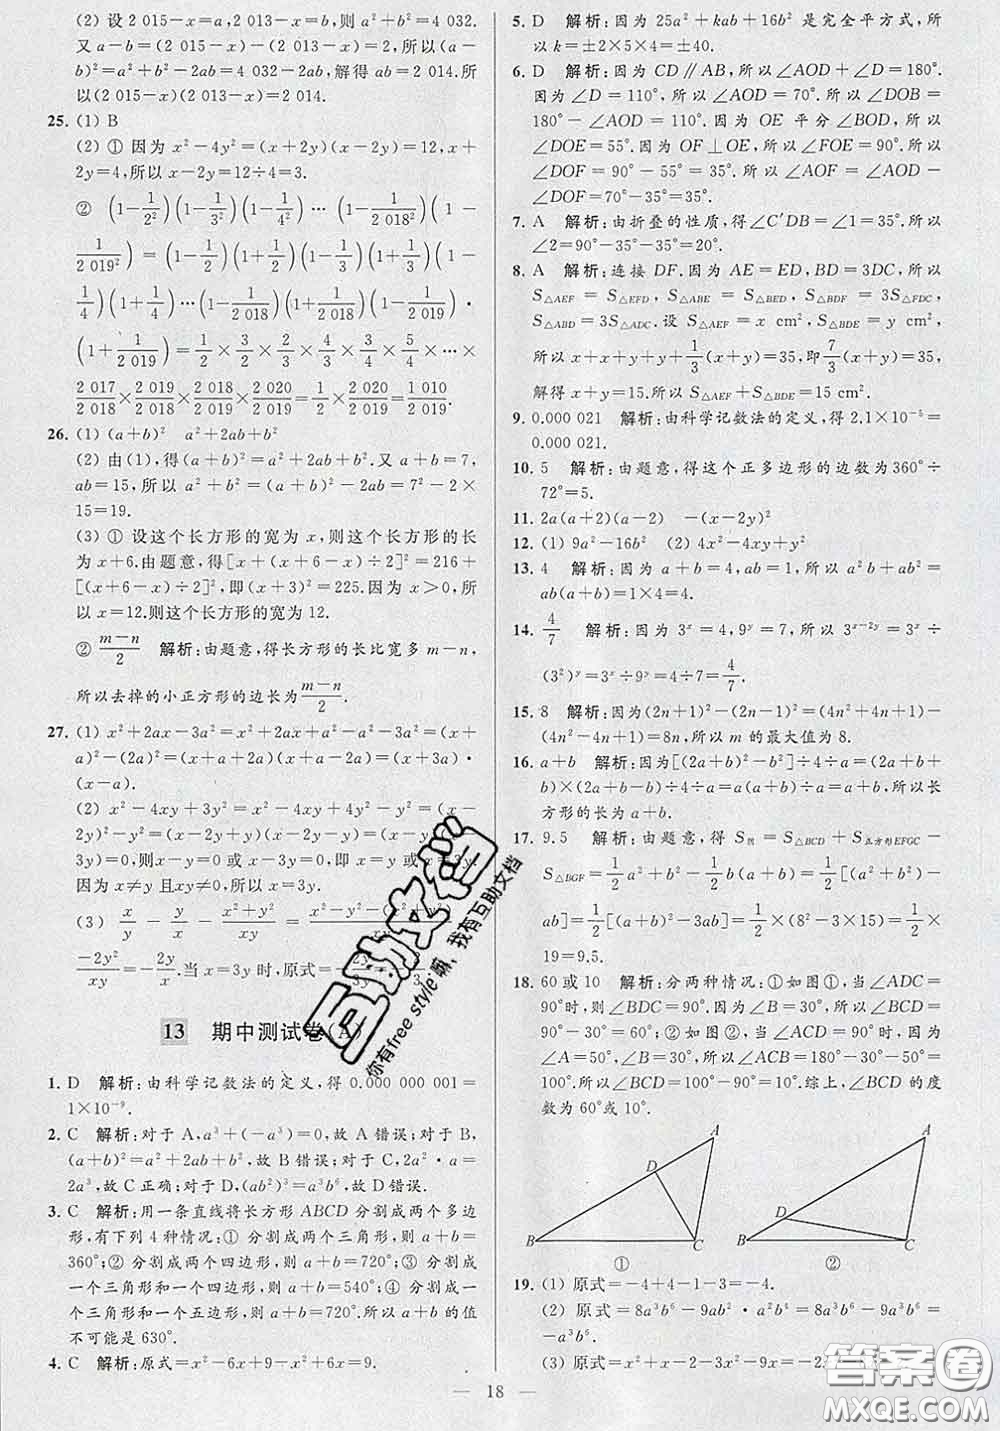 (2) 设2 015-x=a,2 013-x=b,则a²+b²=4 032.
又a-b=(2 015-x)-(2 013-x)=2,所以(a-
b)²=a²+b²-2ab=4 032-2ab,解得ab=2 014.所
以(2 015-x)(2 013-x)=2 014.
25. (1) B
(2) ① 因为x²-4y²=(x+2y)(x-2y)=12,x+
2y=4,所以x-2y=12÷4=3.
② (1-1/2²)(1-1/3²)(1-1/4²)…(1-1/2 018²)(1-
1/2 019²)=(1-1/2)(1+1/2)(1-1/3)(1+1/3)(1-
1/4)(1+1/4)…(1-1/2 018)(1+1/2 018)(1-1/2 019)·
(1+1/2 019)=1/2×3/2×2/3×4/3×3/4×5/4×…×
2 017/2 018×2 019/2 018×2 018/2 019×2 020/2 019=1/2×2 020/2 019=1 010/2 019.
26. (1) (a+b)² a²+2ab+b²
(2) 由(1),得(a+b)²=a²+2ab+b².又a+b=7,
ab=15,所以a²+b²=(a+b)²-2ab=7²-2×
15=19.
(3) ① 设这个长方形的宽为x,则这个长方形的长
为x+6.由题意,得[x+(x+6-x)÷2]²=216+
[(x+6-x)÷2]²,即(x+3)²=225.因为x>0,所
以x=12.则这个长方形的宽为12.
② (m-n)/2 解析:由题意,得长方形的长比宽多m-n,
所以去掉的小正方形的边长为(m-n)/2.
27. (1) x²+2ax-3a²=x²+2ax+a²-4a²=(x+
a)²-(2a)²=(x+a+2a)(x+a-2a)=(x+3a)·
(x-a).
(2) x²-4xy+3y²=x²-4xy+4y²-y²=(x-
2y)²-y²=(x-2y+y)(x-2y-y)=(x-y)(x-
3y)=0,则x-y=0或x-3y=0,即x=y或x=3y.
因为x≠y且xy≠0,所以x=3y.
(3) x/y-y/x-(x²+y²)/xy=(x²-y²-(x²+y²))/xy=
-2y²/xy=-2y/x.当x=3y时,原式=
13 期中测试卷(A)
1. D 解析:由科学记数法的定义,得0.000 000 001=
1×10⁻⁹.
2. C 解析:对于A,a³+(-a³)=0,故A错误;对于B,
(a+b)²=a²+2ab+b²,故B错误;对于C,2a²·a=
2a³,故C正确;对于D,(ab²)³=a³b⁶,故D错误.
3. C 解析:用一条直线将长方形ABCD分割成两个多边
形,有下列4种情况:① 分割成两个三角形,则a+b=
360°;② 分割成两个四边形,则a+b=720°;③ 分割成
一个三角形和一个四边形,则a+b=540°;④ 分割成一
个三角形和一个五边形,则a+b=720°.所以a+b的值
不可能是630°.
4. C 解析:原式=x²-6x+9-x²+6x=9.
5. D 解析:因为25a²+kab+16b²是完全平方式,所
以k=±2×5×4=±40.
6. D 解析:因为CD∥AB,所以∠AOD+∠D=180°.
因为∠D=110°,所以∠AOD=70°.所以∠DOB=
180°-∠AOD=110°.因为OE平分∠BOD,所以
∠DOE=55°.因为OF⊥OE,所以∠FOE=90°.所
以∠DOF=90°-55°=35°.所以∠AOF=∠AOD-
∠DOF=70°-35°=35°.
7. A 解析:由折叠的性质,得∠C′DB=∠1=35°.所以
∠2=90°-35°-35°=20°.
8. A 解析:连接DF.因为AE=ED,BD=3DC,所以
S△AEF=S△EFD,S△ABE=S△BED,S△BDF=3S△FDC,
S△ABD=3S△ADC.设S△AEF=x cm²,S△BDE=y cm²,
所以x+x+y+y+1/3(x+y)=35,即7/3(x+y)=35,
解得x+y=15.所以S△AEF+S△BDE=15 cm².
9. 0.000 021 解析:由科学记数法的定义,得2.1×10⁻⁵=
0.000 021.
10. 5 解析:由题意,得这个正多边形的边数为360°÷
72°=5.
11. 2a(a+2)(a-2) -(x-2y)²
12. (1) 9a²-16b² (2) 4x²-4xy+y²
13. 4 解析:因为a+b=4,ab=1,所以a²b+ab²=
ab(a+b)=1×4=4.
14. 4/7 解析:因为3ˣ=4,9ʸ=7,所以3ˣ⁻²ʸ=3ˣ÷
(3²)ʸ=3ˣ÷9ʸ=4÷7=4/7.
15. 8 解析:因为(2n+1)²-(2n-1)²=(4n²+4n+1)-
(4n²-4n+1)=8n,所以m的最大值为8.
16. a+b 解析:因为[(2a+b)²-b²]÷4÷a=(2a+b+
b)×(2a+b-b)÷4÷a=a(a+b)÷a=a+b,所以长
方形的长为a+b.
17. 9.5 解析:由题意,得S阴=S△BCD+S正方形EFGC-
S△BGF=1/2a²+b²-1/2b(a+b)=1/2[(a²+b²)-
ab]=1/2[(a+b)²-3ab]=1/2×(8²-3×15)=1/2×
19=9.5.
18. 60或10 解析:分两种情况:① 如图①,当∠ADC=
90°时,则∠BDC=90°.因为∠B=30°,所以∠BCD=
90°-30°=60°;② 如图②,当∠ACD=90°时,因为
∠A=50°,∠B=30°,所以∠ACB=180°-30°-50°=
100°.所以∠BCD=100°-90°=10°.综上,∠BCD的度
数为60°或10°.
A
D
B
C
①
A
D
B
C
②
19. (1) 原式=-4+4-1-3=-4.
(2) 原式=8a³b⁶-9ab²·a²b⁴=8a³b⁶-9a³b⁶=
-a³b⁶.
(3) 原式=x²+x-2-3x²-9x=-2x²-
18
互助文档
你有free style嘛,我有互助文档
答案圈
MXQE.COM